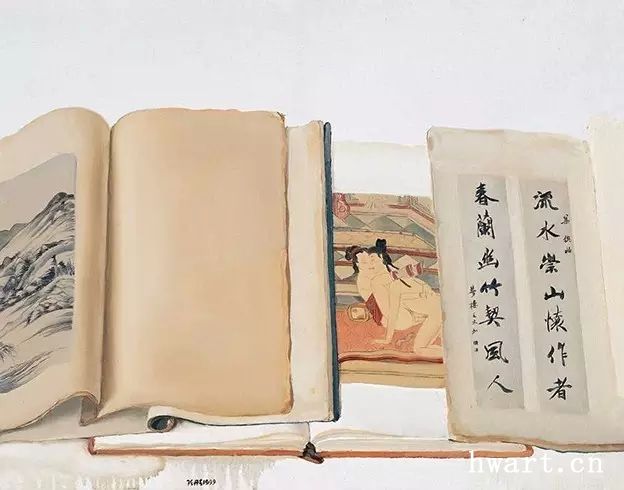 流水崇山懷作者
春蘭幽竹契風人
hwart.cn